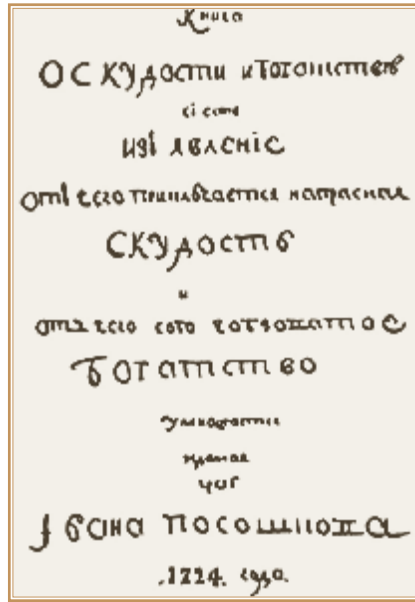 Книга
О СКУДОСТИ и богатстве
сі есть
изъявленіе
отъ чего приключается напрасная
СКУДОСТЬ
и
отъ чего
богатство
умножается
Івана посошкова
1724. года.